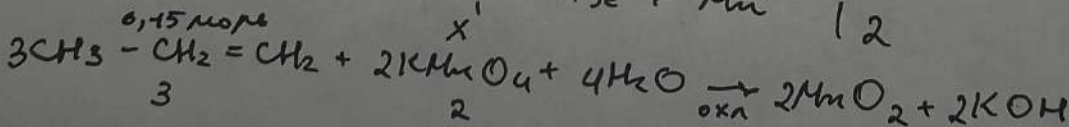 0,15 моль x 12
3CH3 - CH2 = CH2 + 2KMnO4 + 4H2O → 2MnO2 + 2KOH
3 2 охл